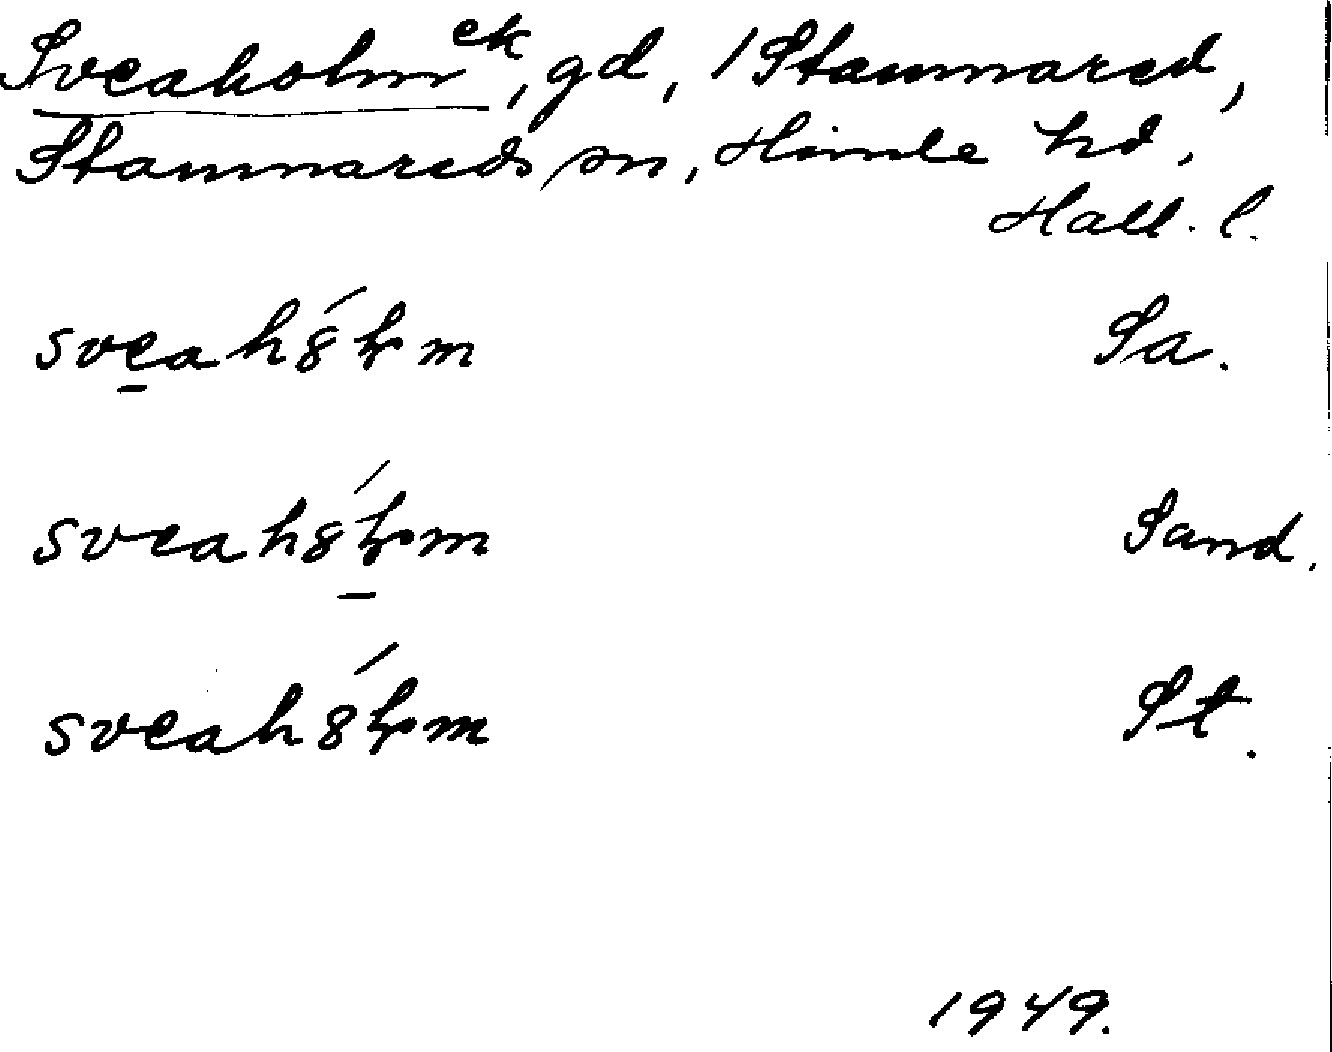 Sveaholm ek, gd, 1 Stamnared,
Stamnareds sn, Himle hd,
Hall. l.
sveahȣ́ɫm Sa.
sveahȣ́ɫm Sand.
sveahȣ́ɫm St.
1949.